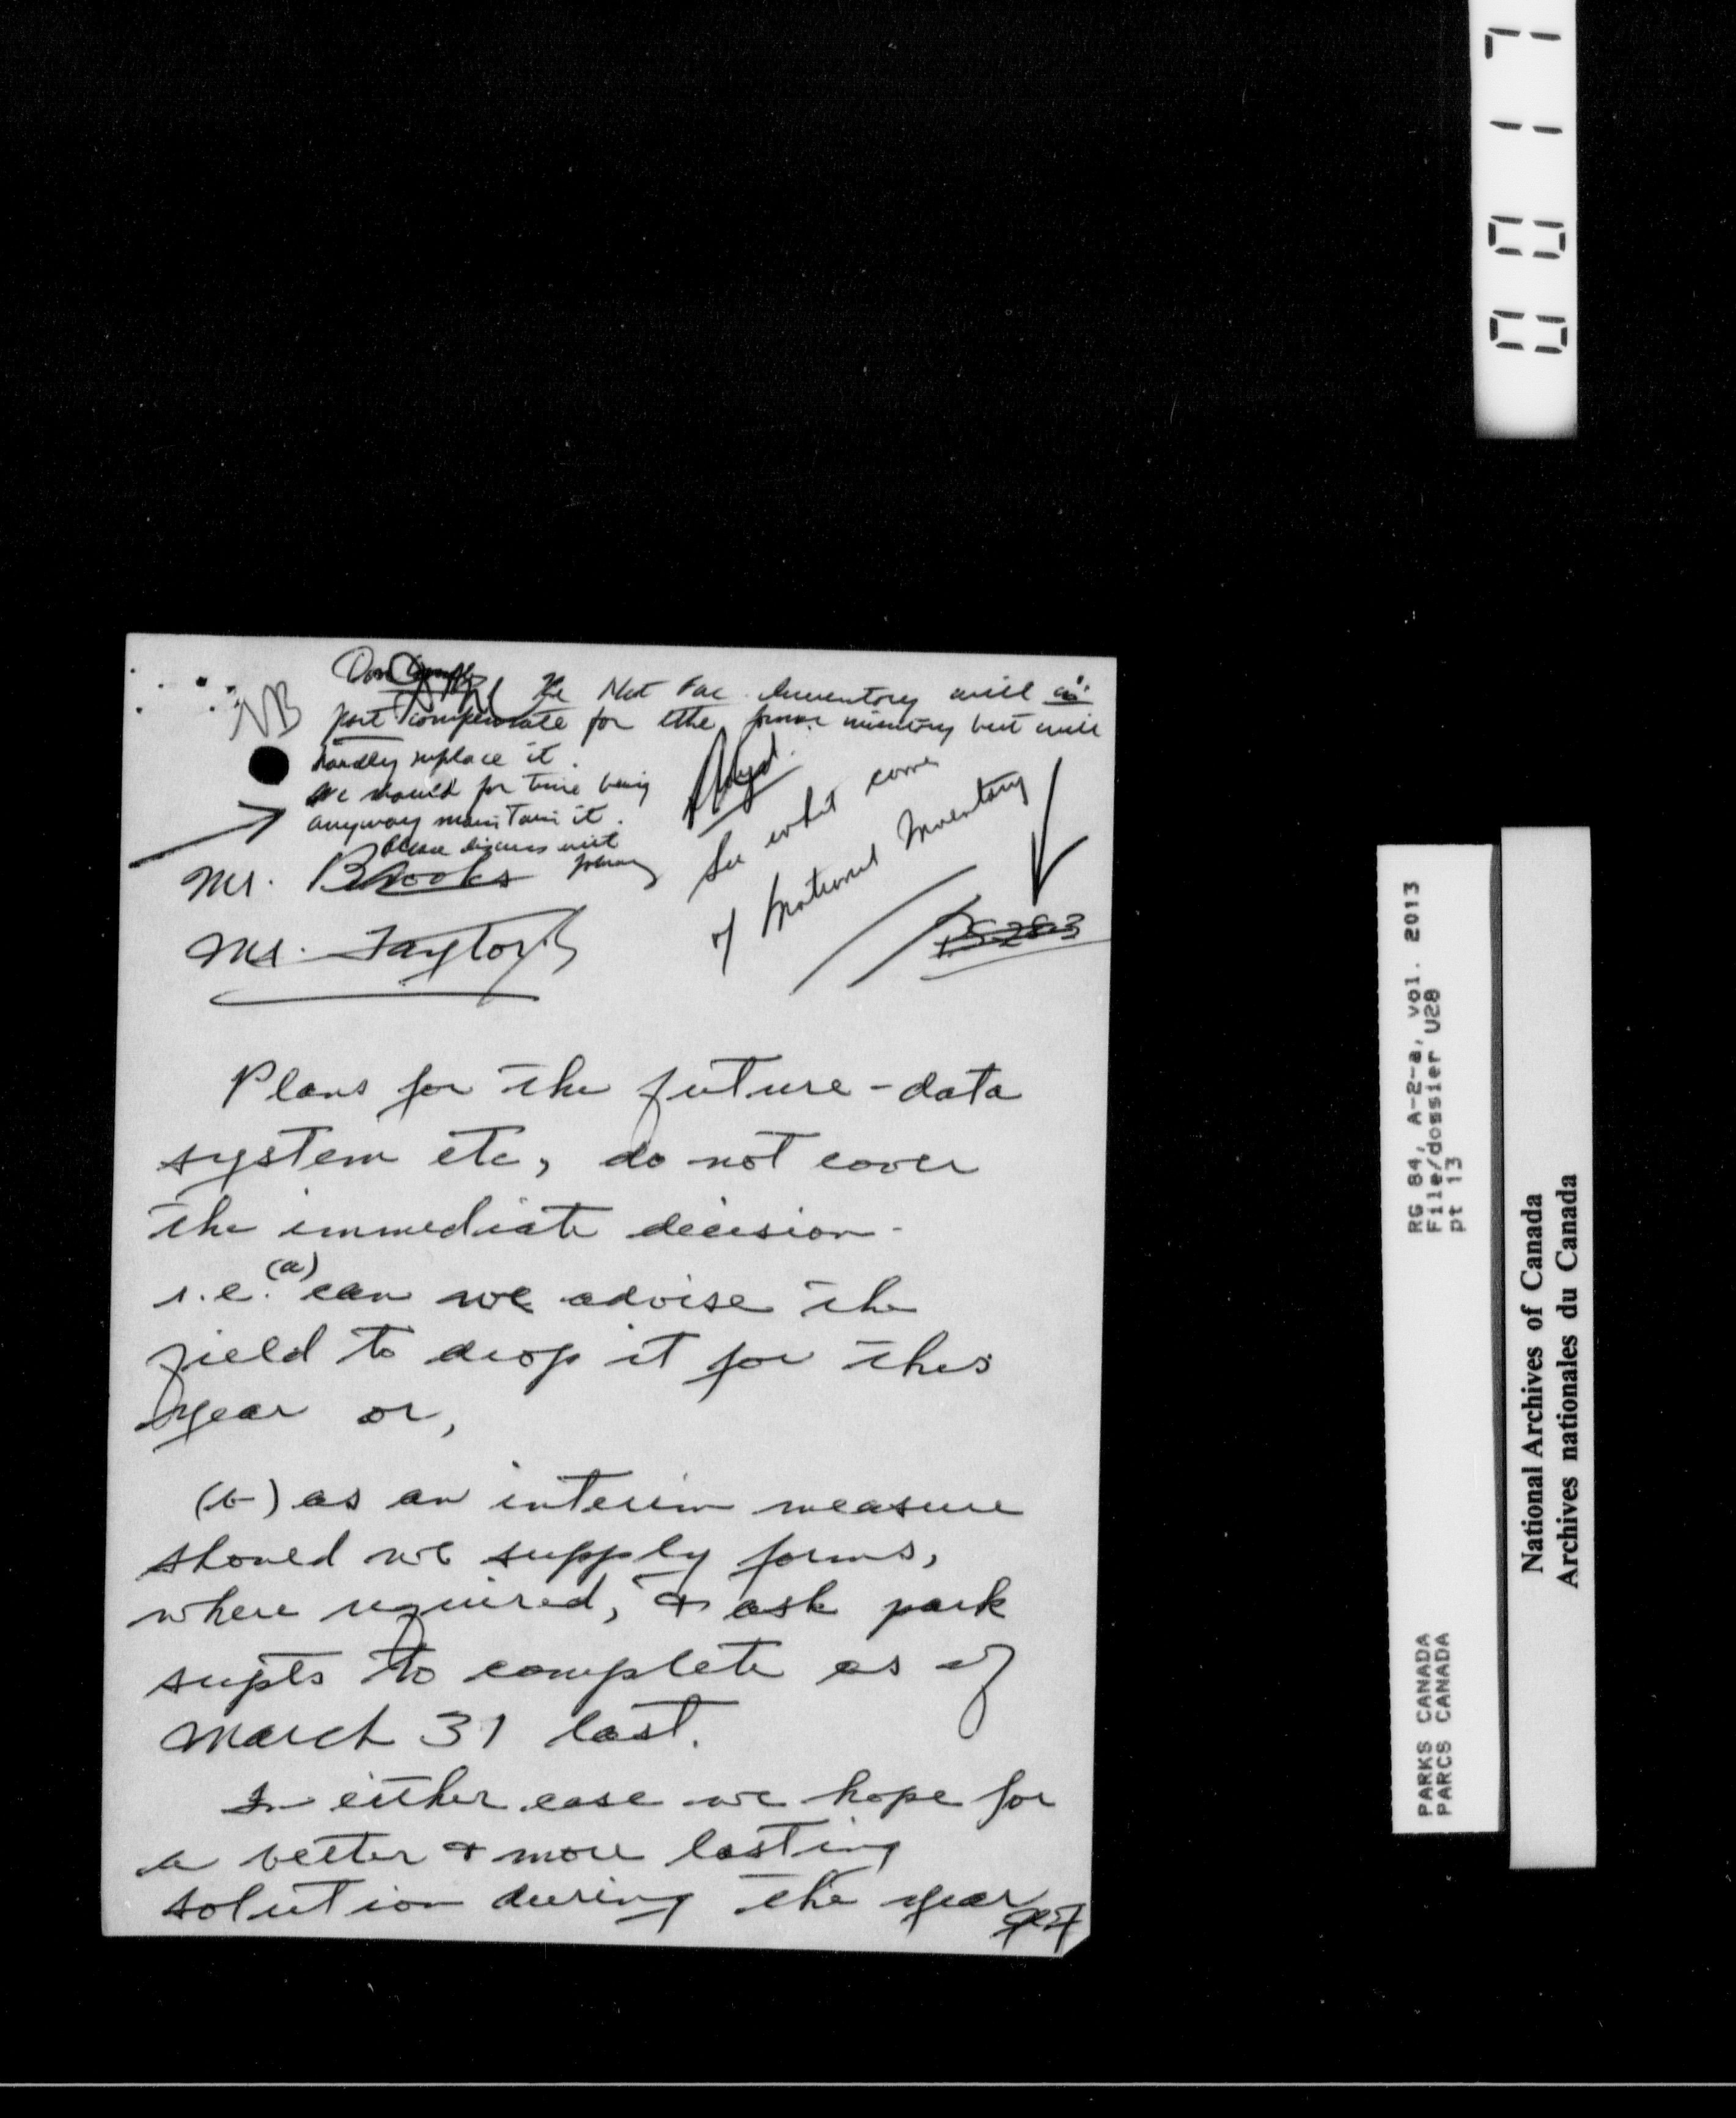 00 17
NB
The Nat Fac Inventory will in
part compensate for the former inventory but will
hardly replace it.
We should for time being
anyway maintain it.
Please discuss with
See what comes
of National Inventory
Mr. Brooks
Mr. Taylor
Plans for the future - data
system etc, do not cover
the immediate decision -
i.e. (a) can we advise the
field to drop it for this
year or,
(b) as an interim measure
should we supply forms,
where required, & ask park
supts to complete as of
March 31 last.
In either case we hope for
a better & more lasting
solution during the year
RG 84, A-2-a, vol. 2013
File/dossier U28
pt 13
PARKS CANADA
PARCS CANADA
National Archives of Canada
Archives nationales du Canada